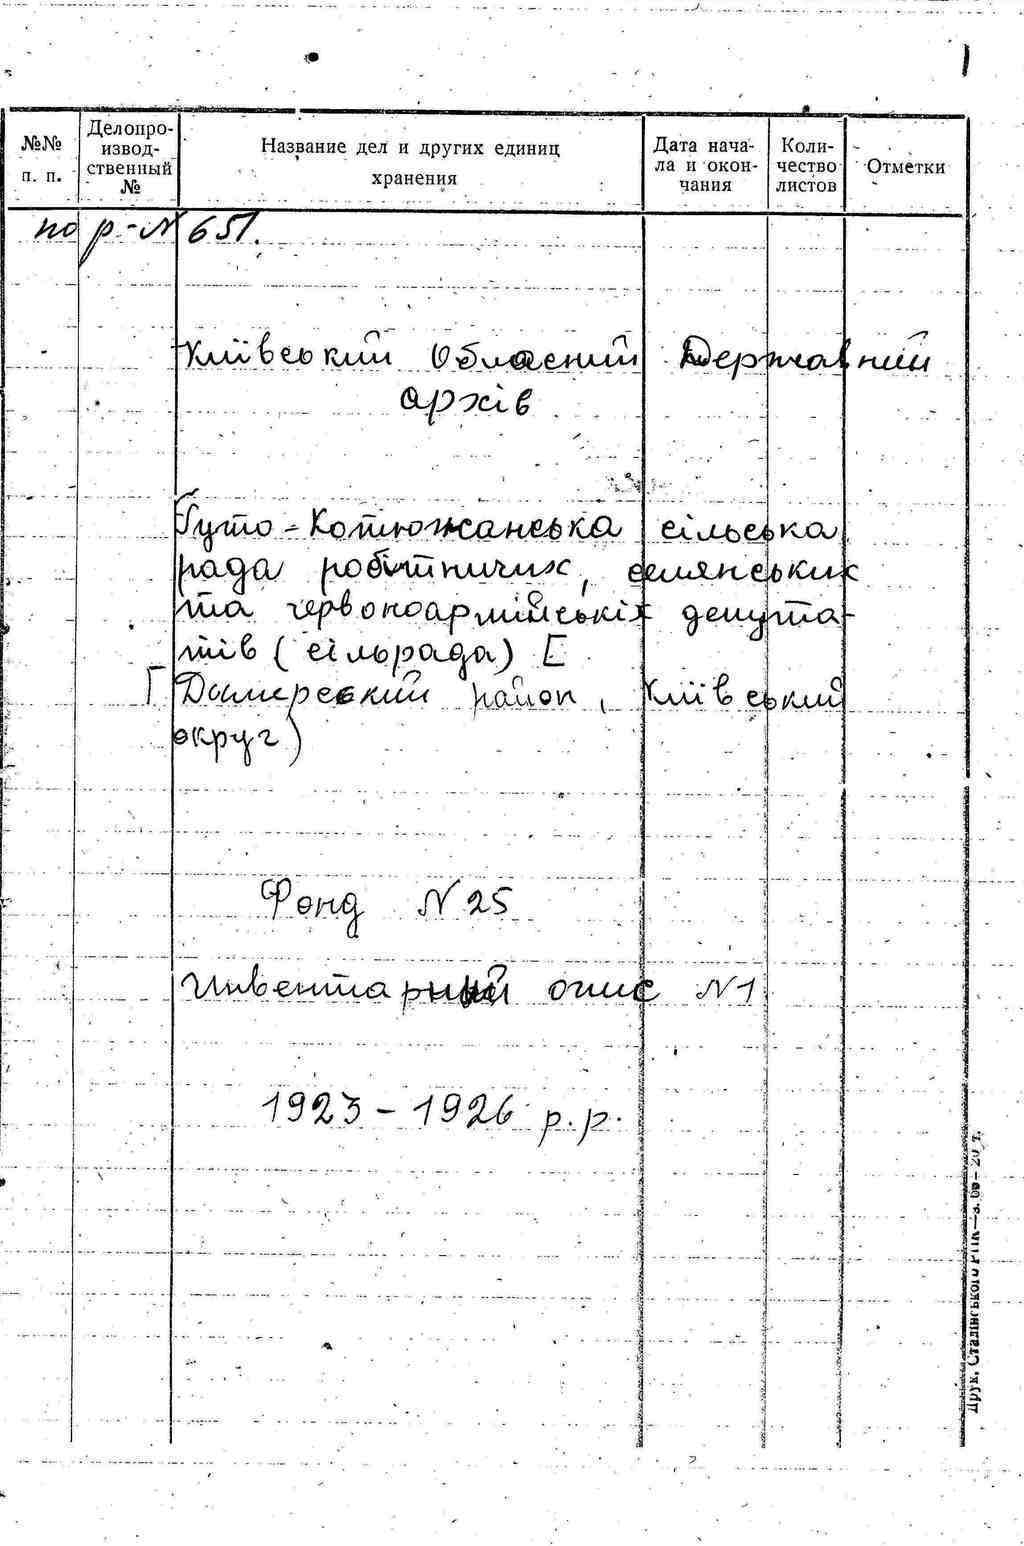 1
№№ п. п.
Делопро-
извод-
ственный
№
Название дел и других единиц
хранения
Дата нача-
ла и окон-
чания
Коли-
чество
листов
Отметки
по р-N 651.
Київський Обласний Державний
архів
Гуто-Котюжанська сільська
рада робітничих, селянських
та червоноармійських депута-
тів (сільрада) [
[ Димерський район, Київський
округ)
Фонд N 25
Инвентарный опис N1
1923-1926 р.р.
Друк. Сталінського РПК—з. 60—20 т.